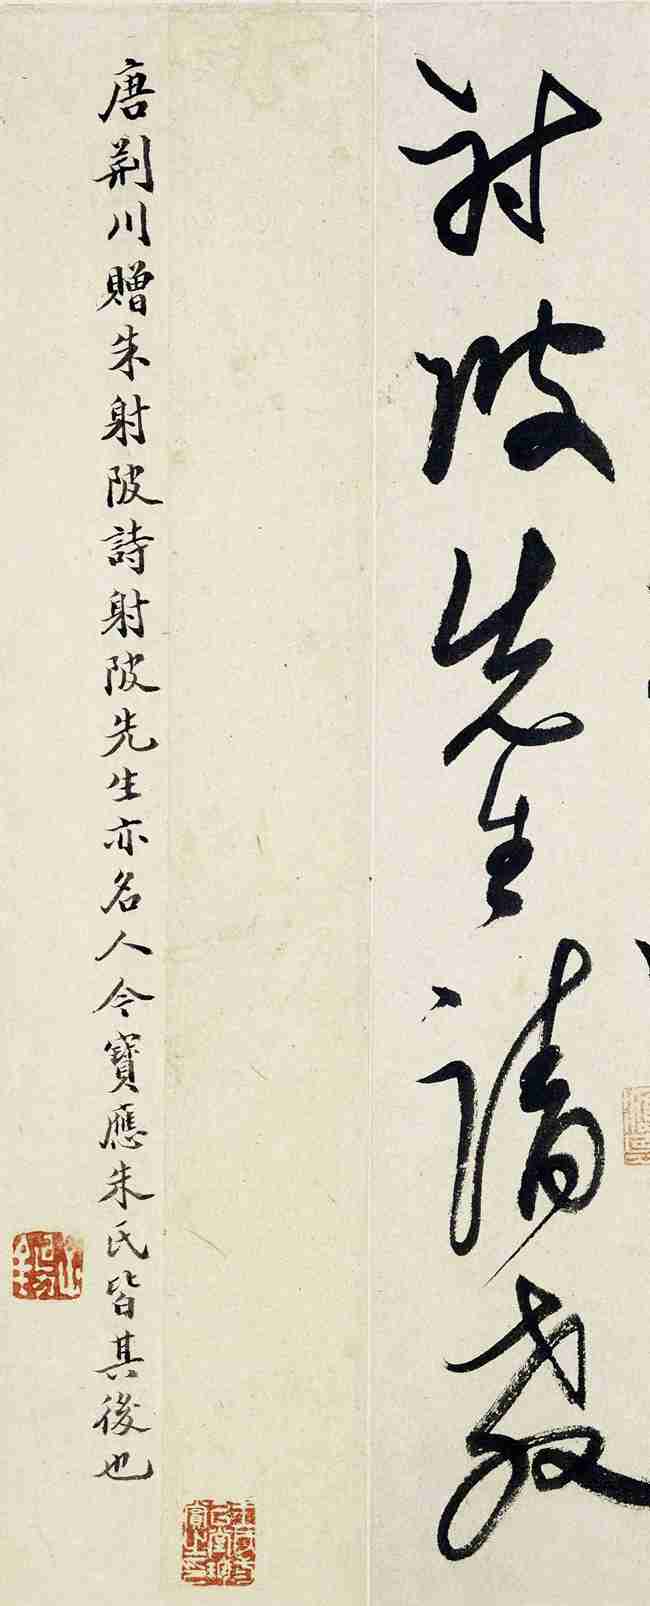 射陂先生請教
唐荆川贈朱射陂詩射陂先生亦名人今寶應朱氏皆其後也